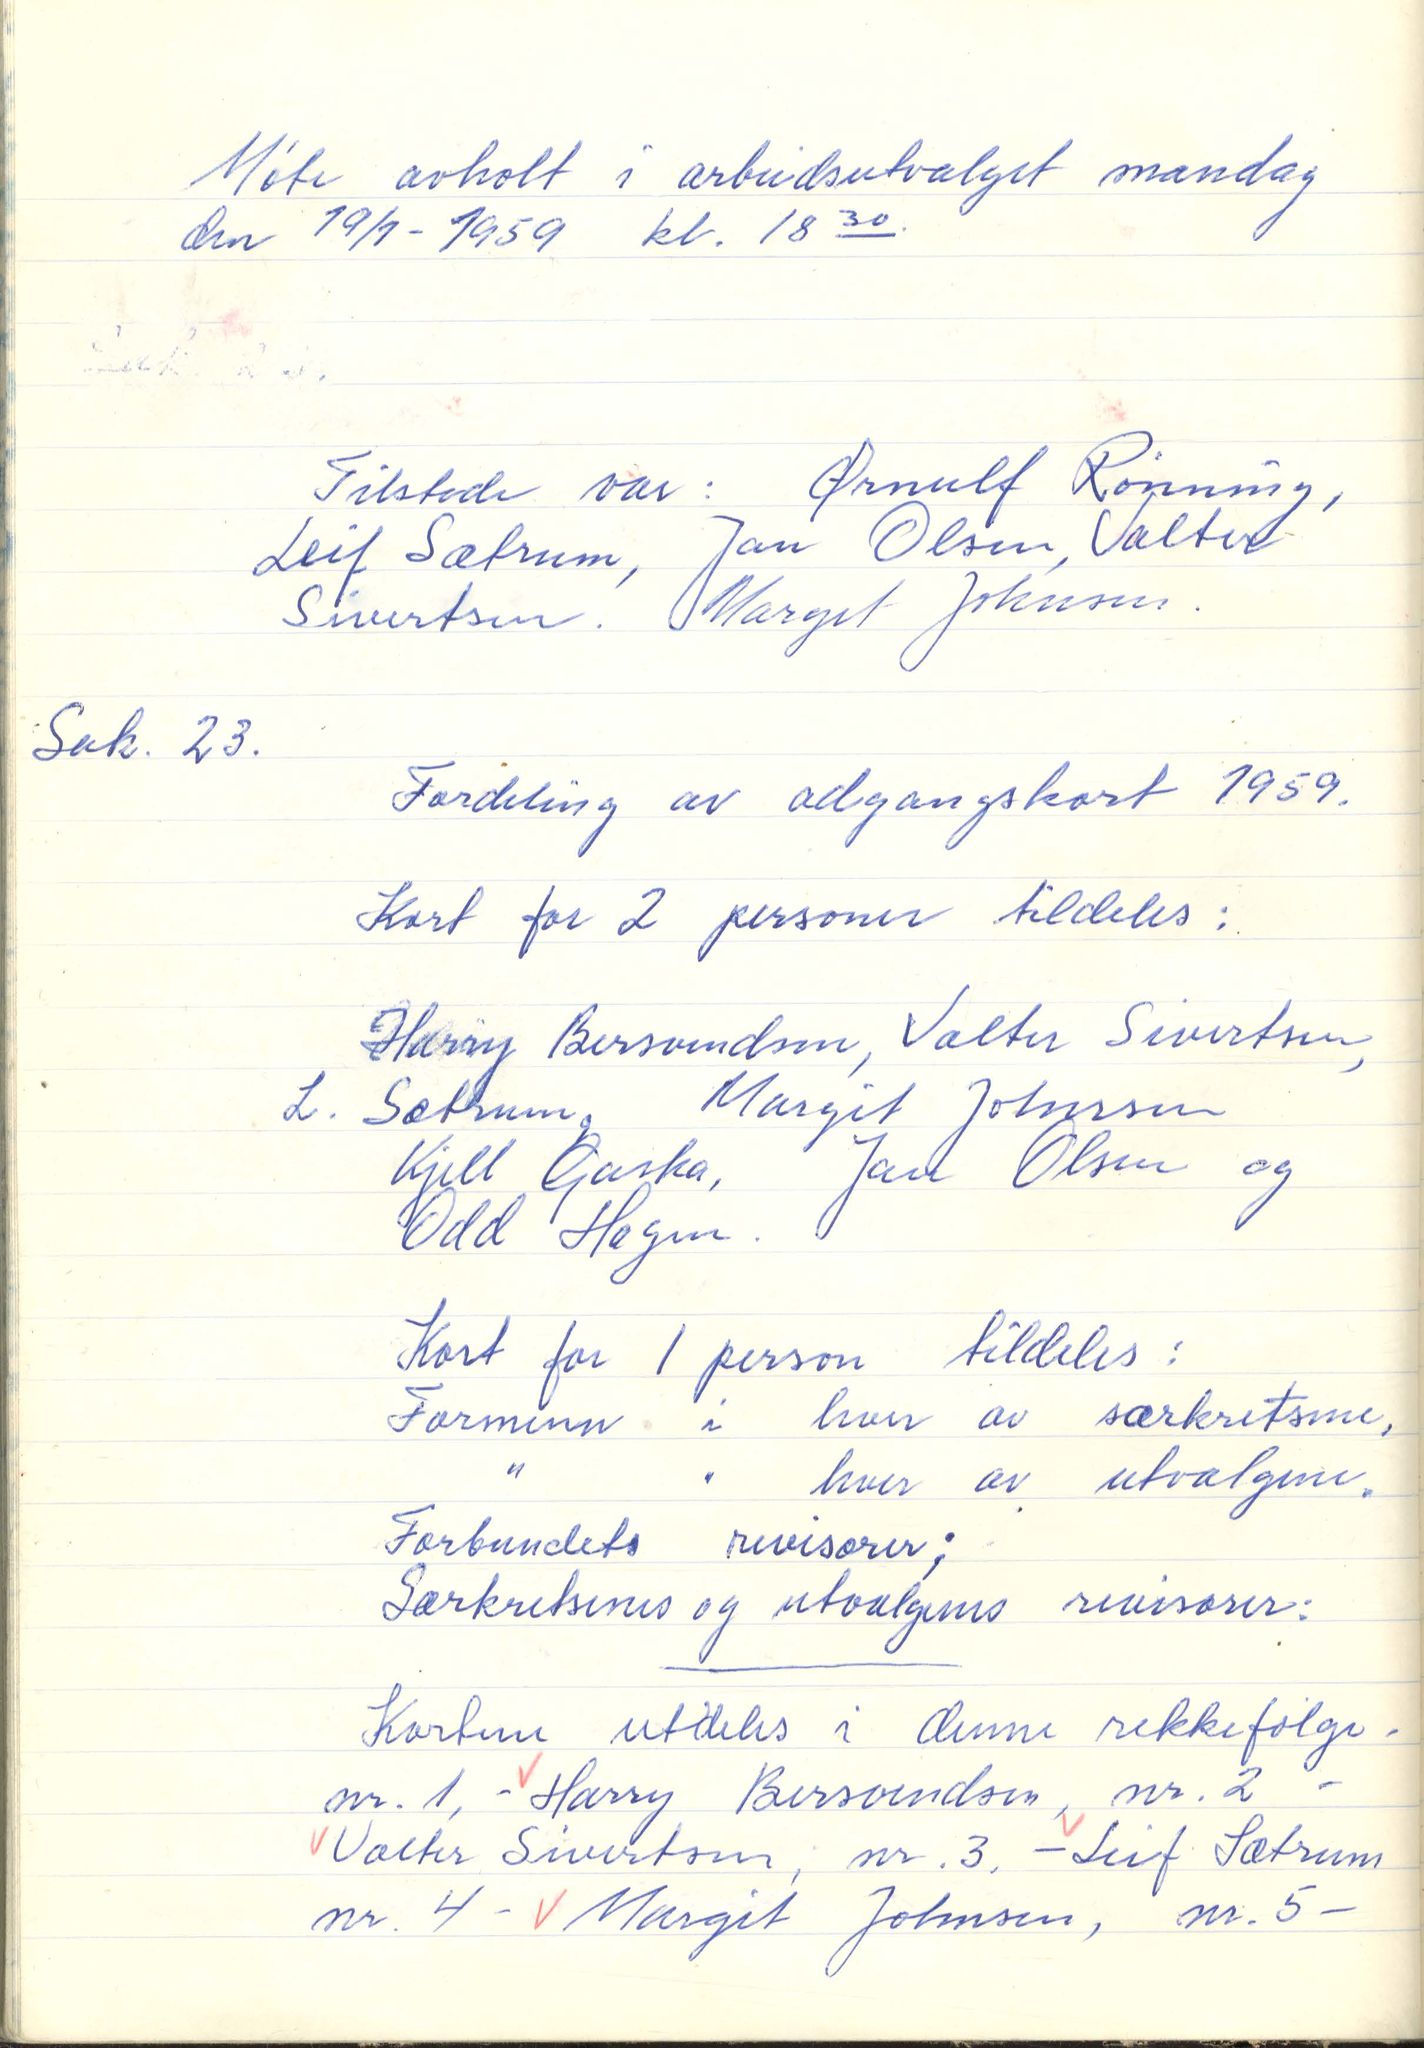 Möte avholt i arbeidsutvalget mandag
den 19/1-1959 kl. 18 30.
Tilstede var: Ørnulf Rönning,
Leif Sætrum, Jan Olsen, Valter
Sivertsen. Margit Johnsen.
Sak. 23.
Fordeling av adgangskort 1959.
Kort for 2 personer tildeles:
Harry Bersvendsen, Valter Sivertsen,
L. Sætrum, Margit Johnsen
Kjell Gaska, Jan Olsen og
Odd Hagen.
Kort for 1 person tildeles:
Formenn i hver av særkretsene,
" " hver av utvalgene.
Forbundets revisorer;
Særkretsenes og utvalgenes revisorer:
Kortene utdeles i denne rekkefölge.
nr. 1, - Harry Bersvendsen, nr. 2 -
Valter Sivertsen, nr. 3. - Leif Sætrum
nr. 4 - Margit Johnsen, nr. 5 -